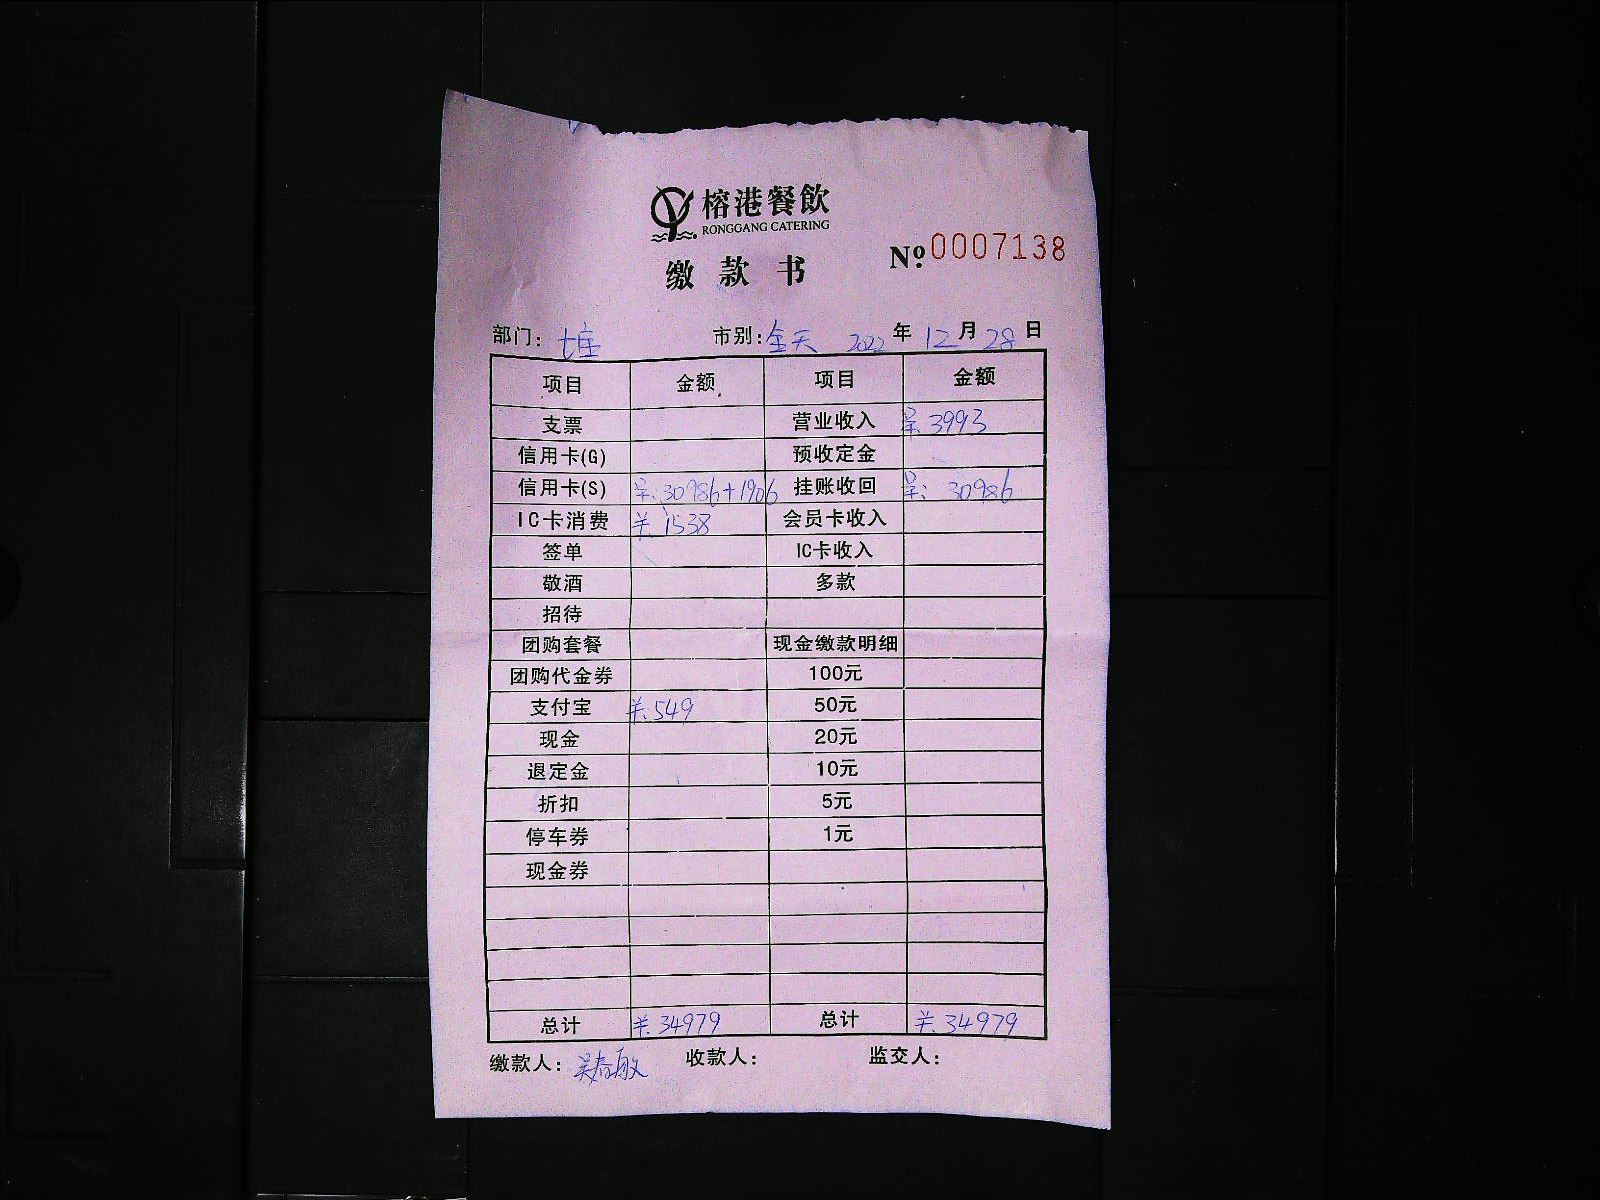 榕港餐飲
RONGGANG CATERING
缴款书
№ 0007138
部门: 市别: 全天 2022年12月28日
项目 金额 项目 金额
支票 营业收入 ¥: 3993
信用卡(G) 预收定金
信用卡(S) ¥: 30986+1906 挂账收回 ¥: 30986
IC卡消费 ¥: 1538 会员卡收入
签单 IC卡收入
敬酒 多款
招待
团购套餐 现金缴款明细
团购代金券 100元
支付宝 ¥: 549 50元
现金 20元
退定金 10元
折扣 5元
停车券 1元
现金券
总计 ¥: 34979 总计 ¥: 34979
缴款人: 吴春敏 收款人: 监交人: